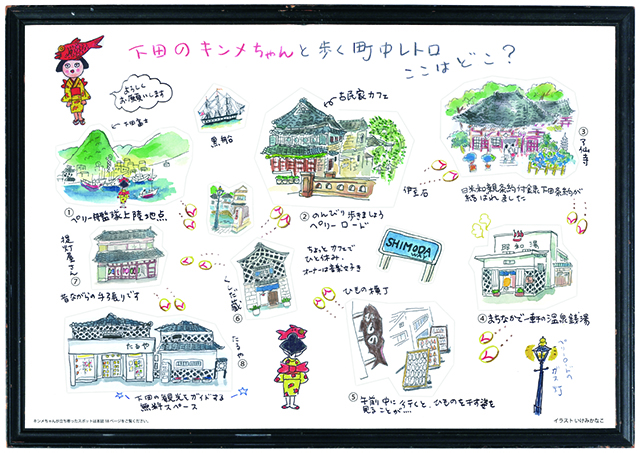 下田のキンメちゃんと歩く町中レトロ
ここはどこ？
よろしく
お願いします
←下田富士
黒船
↩古民家カフェ
③了仙寺
日米和親条約付録下田条約が
結ばれました
伊豆石
① ペリー艦隊上陸地点
② のんびり歩きましょう
ペリーロード
提灯屋さん
⑦
昔ながらの手張りです
くしだ蔵
⑥
ちょっとカフェで
ひと休み
オーナーは音楽好き
SHIMODA
WAY
昭和湯
④ まちなかで一軒の温泉銭湯
ひもの横丁
ひもの
たるや
たるや⑧
下田の観光をガイドする
無料スペース
⑤ 午前中に行くと、ひものを干す姿を
見ることが…
ペリーロードの
ガス灯
キンメちゃんが立ち寄ったスポットは本誌18ページをご覧ください。
イラスト いけみかなこ